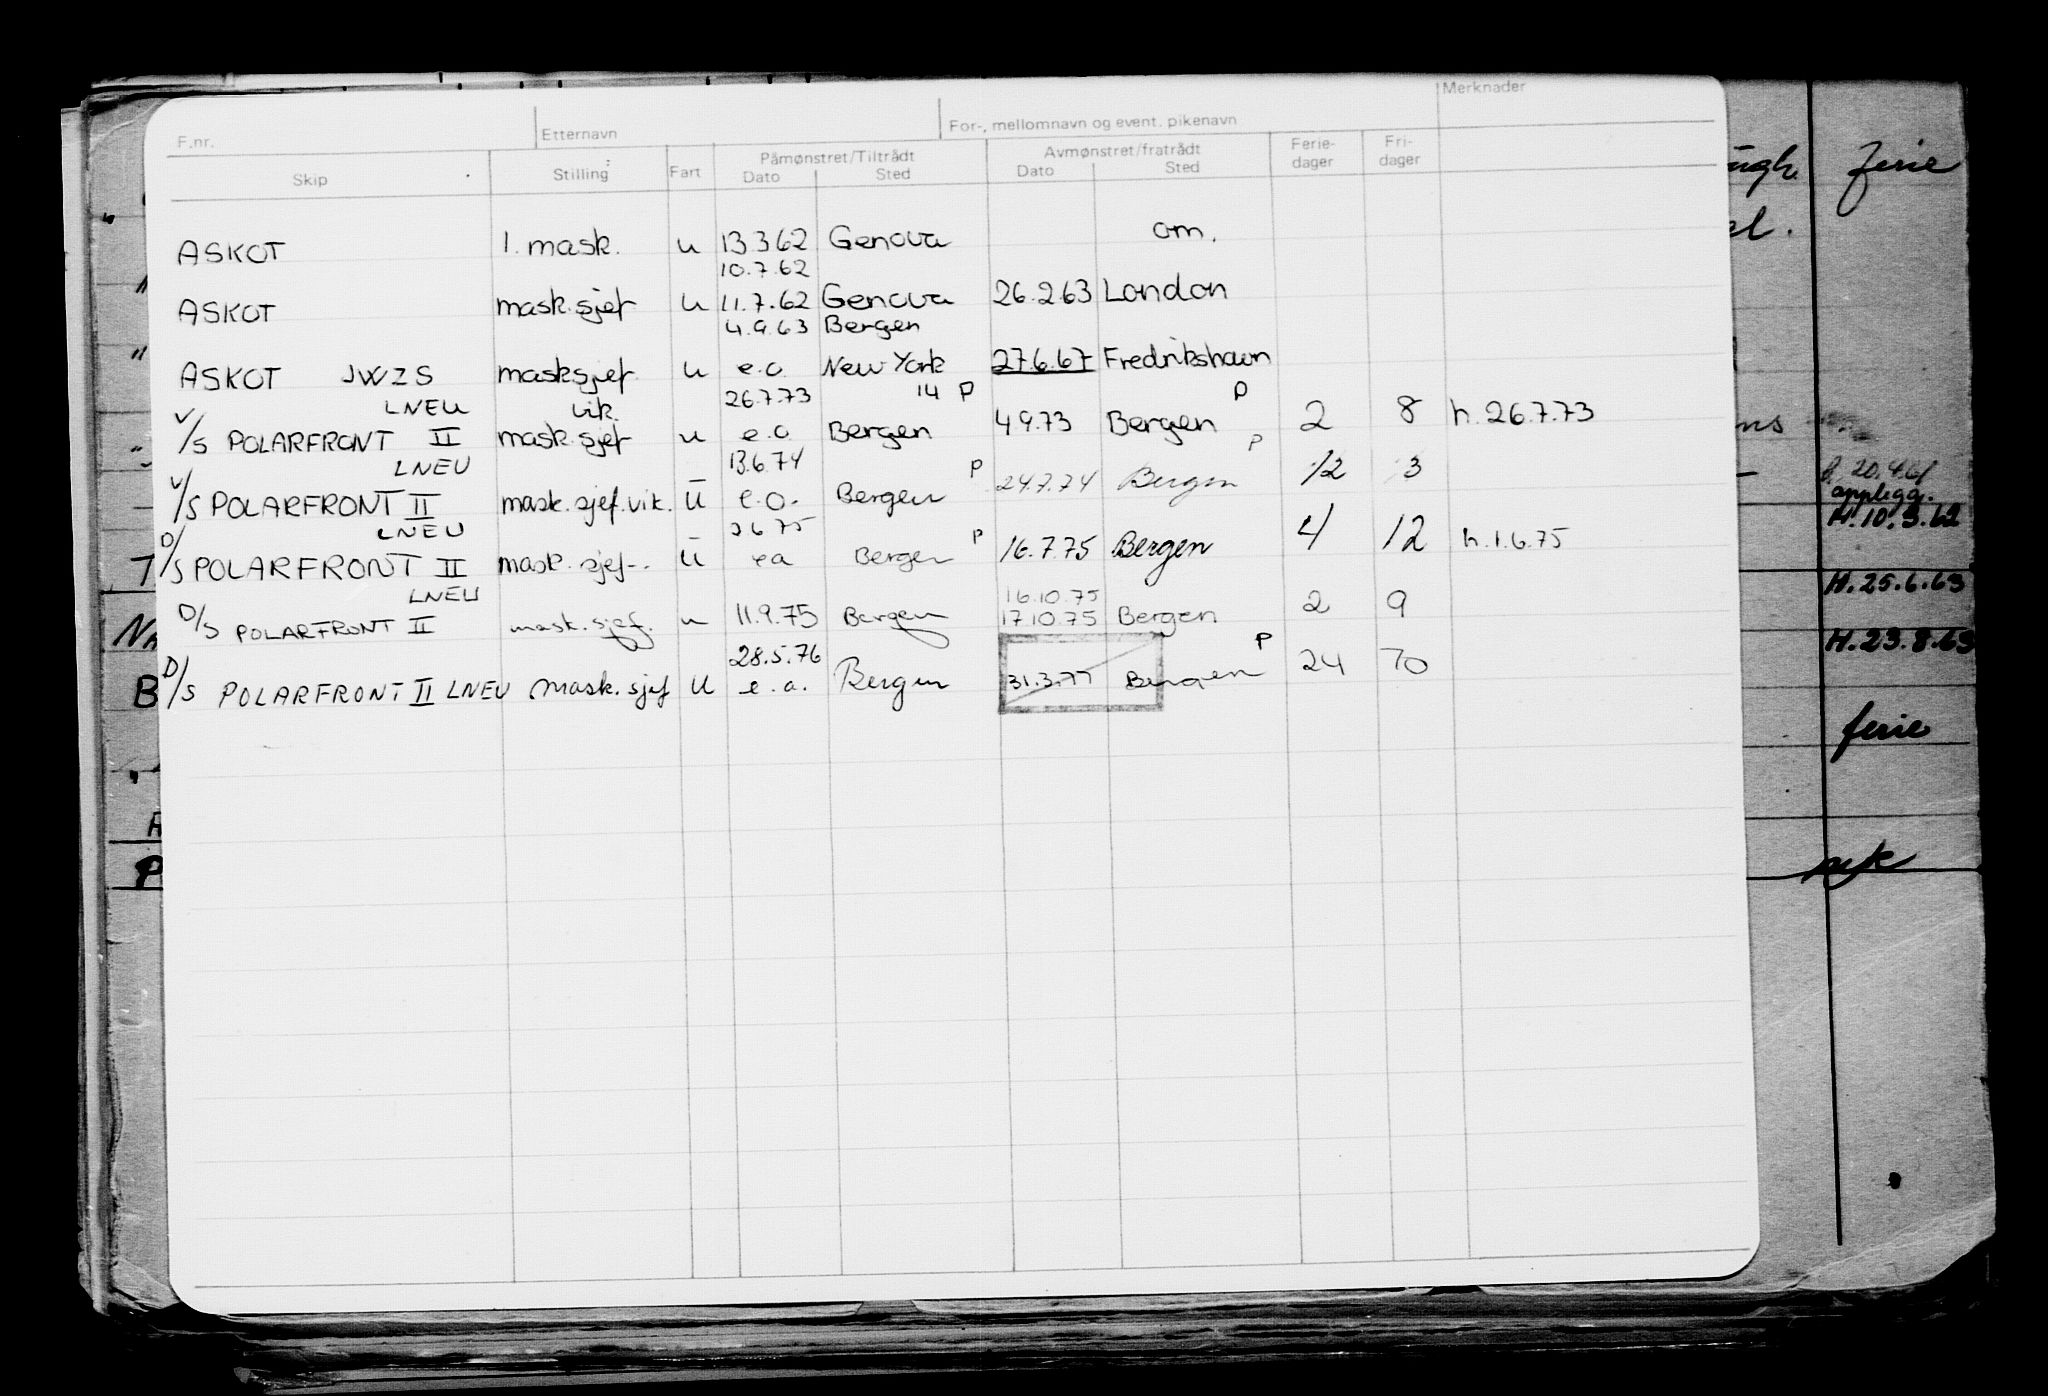 F.nr. Etternavn For-, mellomnavn og event. pikenavn Merknader
Skip Stilling Fart Påmønstret/Tiltrådt Avmønstret/fratrådt Ferie-dager Fri-dager
Dato Sted Dato Sted
ASKOT 1. mask. u 13.3.62 Genova om.
10.7.62
ASKOT mask.sjef u 11.7.62 Genova 26.2.63 London
4.9.63 Bergen
ASKOT JWZS masksjef u e.o New York 27.6.67 Fredrikshavn
LNEU vik. 26.7.73 14 P P
V/S POLARFRONT II mask.sjef u e.o Bergen 4.9.73 Bergen 2 8 h. 26.7.73
LNEU 13.6.74 P P
V/S POLARFRONT II mask.sjef.vik. u e.o. Bergen 24.7.74 Bergen 12 3
LNEU 75 P
D/S POLARFRONT II mask.sjef u Bergen 16.7.75 Bergen 4 12 h.1.6.75
LNEU 16.10.75
D/S POLARFRONT II mask.sjef. u 11.9.75 Bergen 17.10.75 Bergen 2 9
28.5.76 P
D/S POLARFRONT II LNEU Mask.sjef u e.a. Bergen 31.3.77 Bergen 24 70
ferie
applegg.
H.10.3.62
H.25.6.63
H.23.8.63
ferie